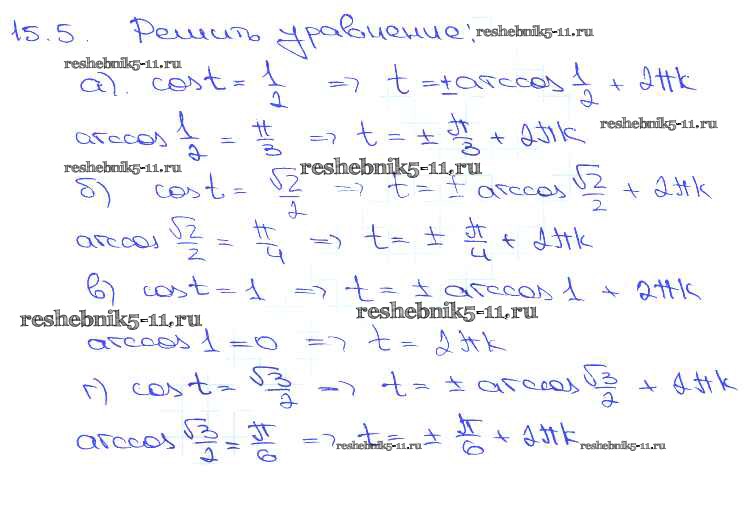 15.5. Решить уравнение: reshebnik5-11.ru
reshebnik5-11.ru
а). cost = 1/2 => t = ± arccos 1/2 + 2πk
arccos 1/2 = π/3 => t = ± π/3 + 2πk reshebnik5-11.ru
reshebnik5-11.ru reshebnik5-11.ru
б) cost = √2/2 => t = ± arccos √2/2 + 2πk
arccos √2/2 = π/4 => t = ± π/4 + 2πk
в) cost = 1 => t = ± arccos 1 + 2πk
reshebnik5-11.ru reshebnik5-11.ru
arccos 1 = 0 => t = 2πk
г) cost = √3/2 => t = ± arccos √3/2 + 2πk
arccos √3/2 = π/6 => t = ± π/6 + 2πk
reshebnik5-11.ru reshebnik5-11.ru